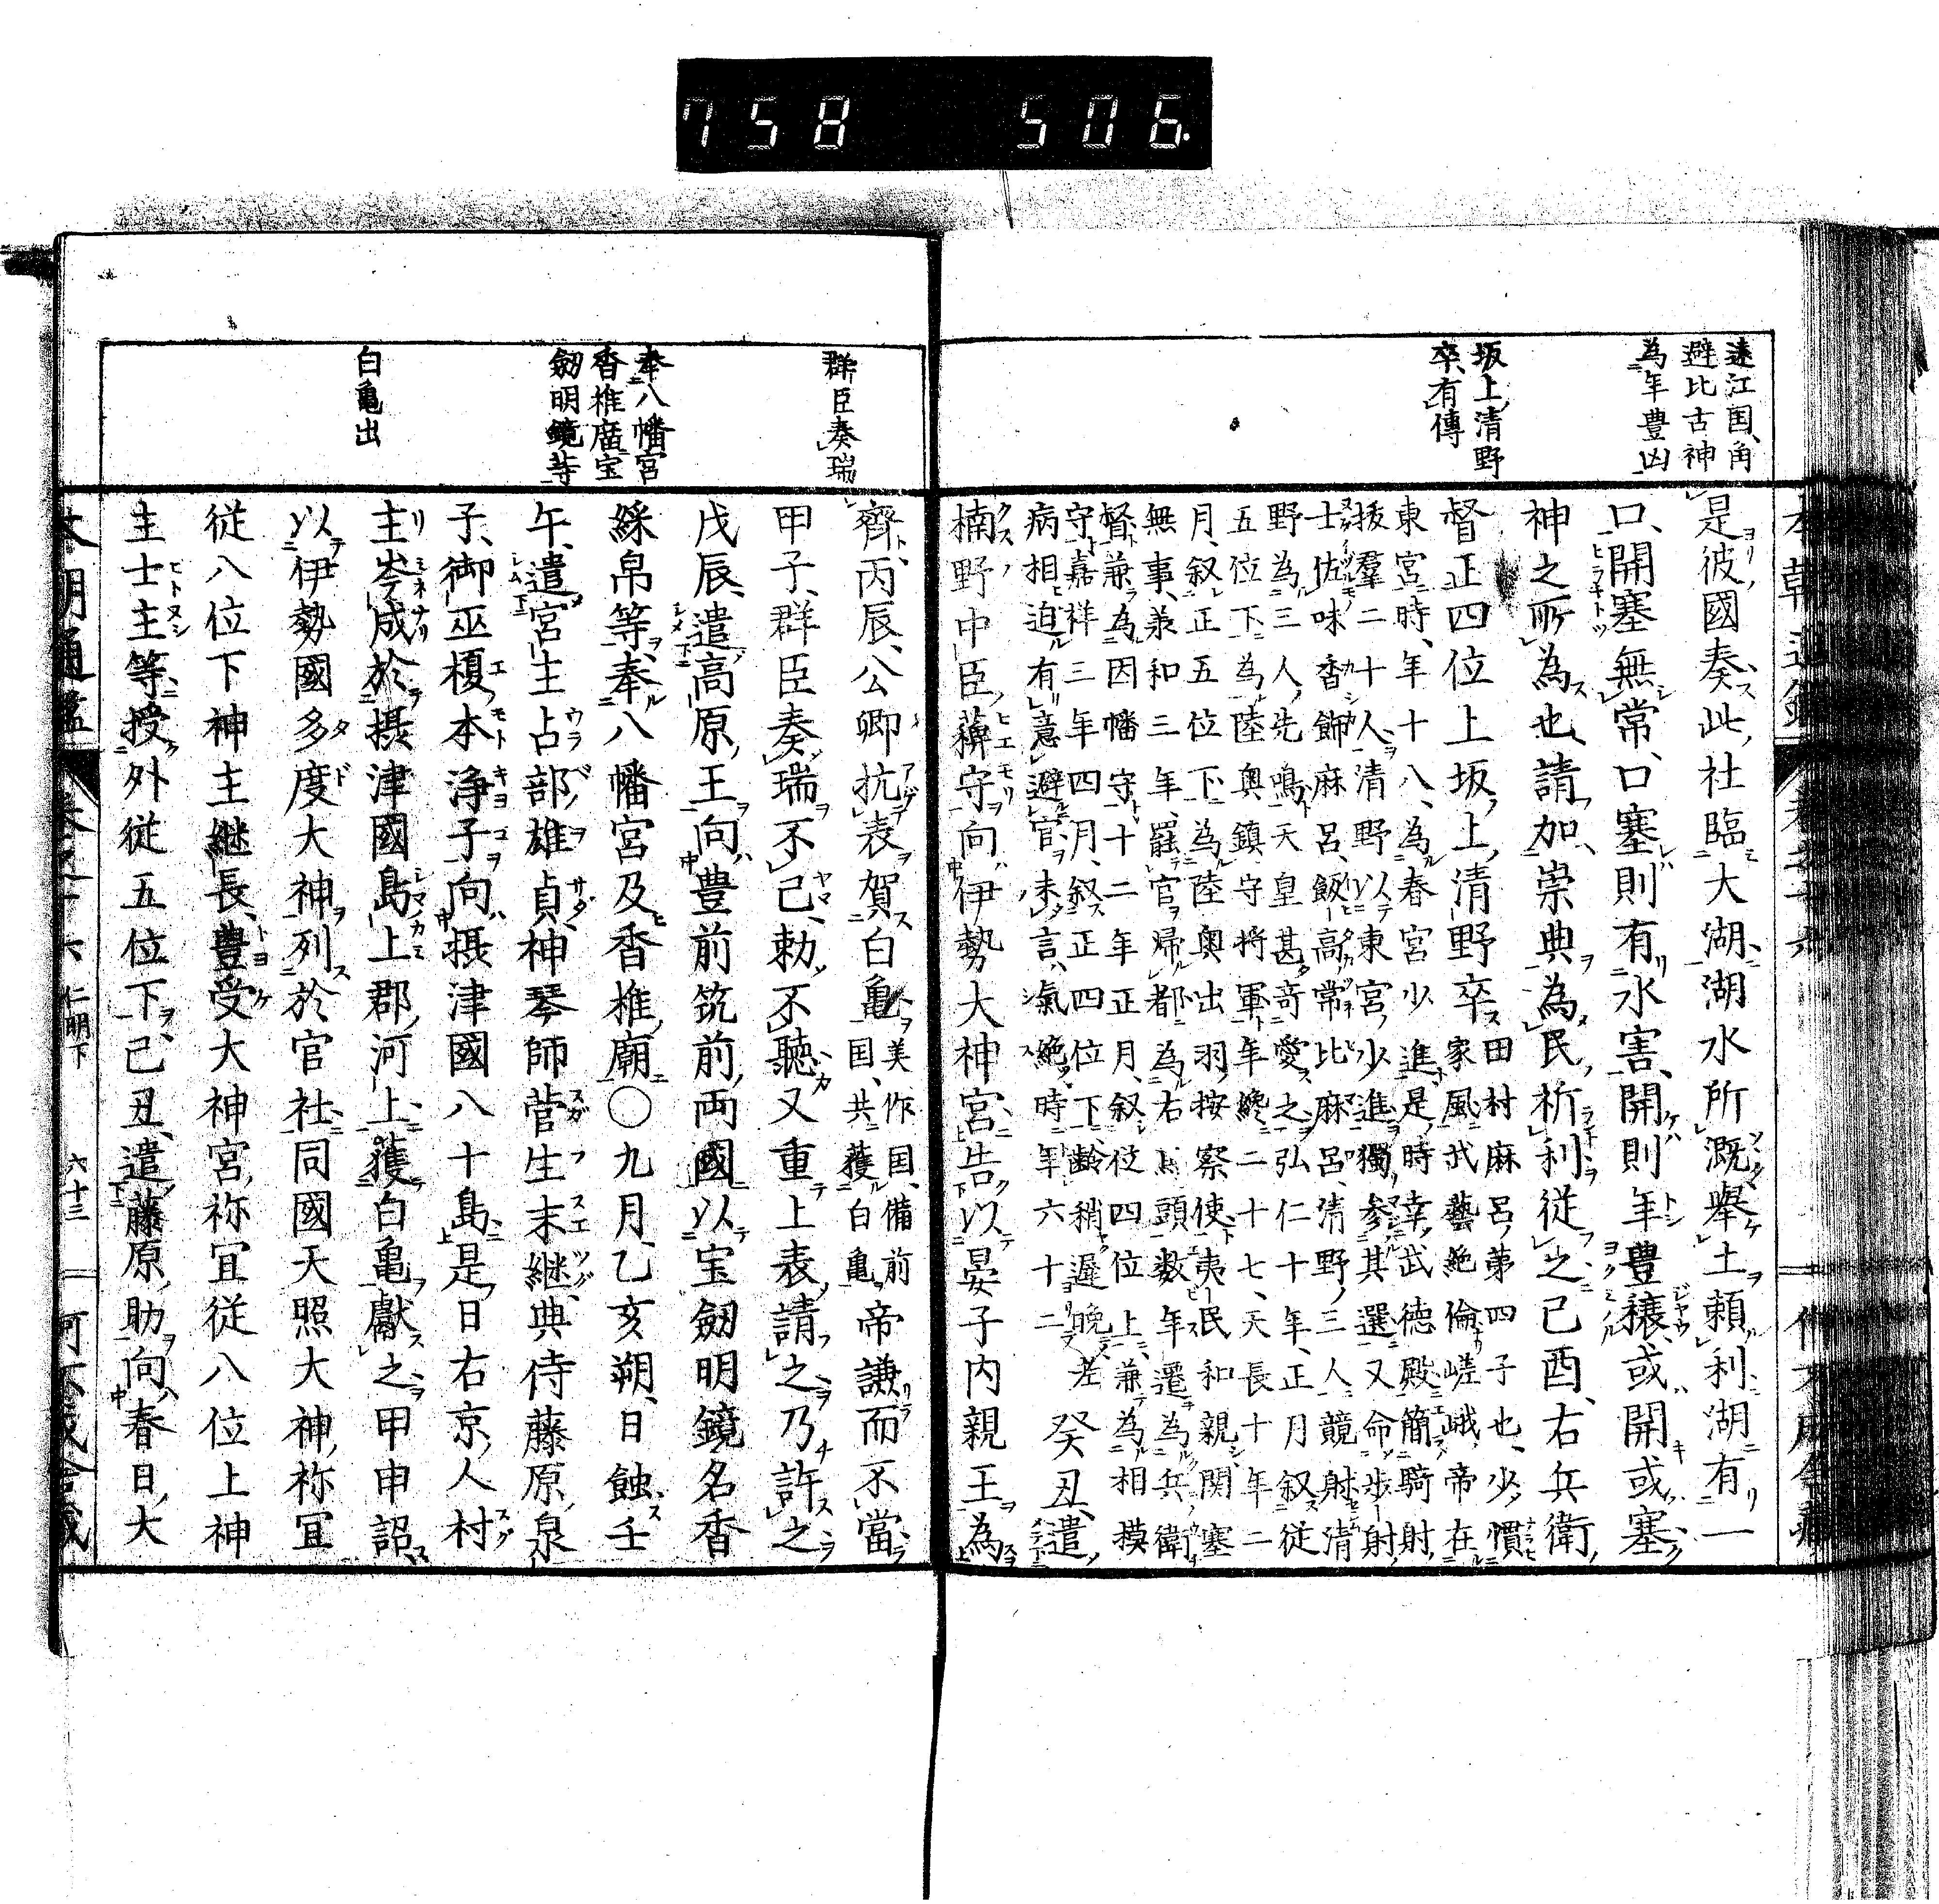 758 506.
遠江国角
避比古神
為年豊凶
坂上清野
卒有傳
是彼國奏此社臨大湖湖水所漑擧土頼利湖有一
口開塞無常口塞則有水害開則年豊穣或開或塞
神之所為也請加崇典為民祈利從之己酉右兵衛
督正四位上坂上清野卒
田村麻呂第四子也少慣
家風武藝絶倫嵯峨帝在
東宮時年十八為春宮少進是時幸武徳殿簡騎射
抜羣二十人清野以東宮少進獨参其選又命歩射
士佐味香飾麻呂飯高常比麻呂清野三人競射清
野為三人先鳴天皇甚奇愛之弘仁十年正月叙従
五位下為陸奥鎮守将軍年纔二十七天長十年二
月叙正五位下為陸奥出羽按察使夷民和親関塞
無事兼和三年罷官歸都為右馬頭数年遷為兵衛
督兼為因幡守十二年正月叙従四位上兼為相摸
守嘉祥三年四月叙正四位下齢稍遅晩差
病相迫有意避官未言氣絶時年六十二
癸丑遣
楠野中臣薭守向伊勢大神宮告以晏子内親王為
本朝通鑑
群臣奏瑞
奉八幡宮
香椎廣宝
劔明鏡等
白亀出
齊丙辰公卿抗表賀白亀
美作国備前
国共獲白亀
帝謙而不當
甲子群臣奏瑞不已勅不聽又重上表請之乃許之
戊辰遣高原王向豊前筑前両國以宝劔明鏡名香
綵帛等奉八幡宮及香椎廟〇九月乙亥朔日蝕壬
午遣宮主占部雄貞神琴師菅生末継典侍藤原泉
子御巫榎本浄子向摂津國八十島是日右京人村
主岑成於摂津國島上郡河上獲白亀獻之甲申詔
以伊勢國多度大神列於官社同國天照大神祢冝
従八位下神主継長豊受大神宮祢冝従八位上神
主士主等授外従五位下己丑遣藤原助向春日大
仁明下 六十三